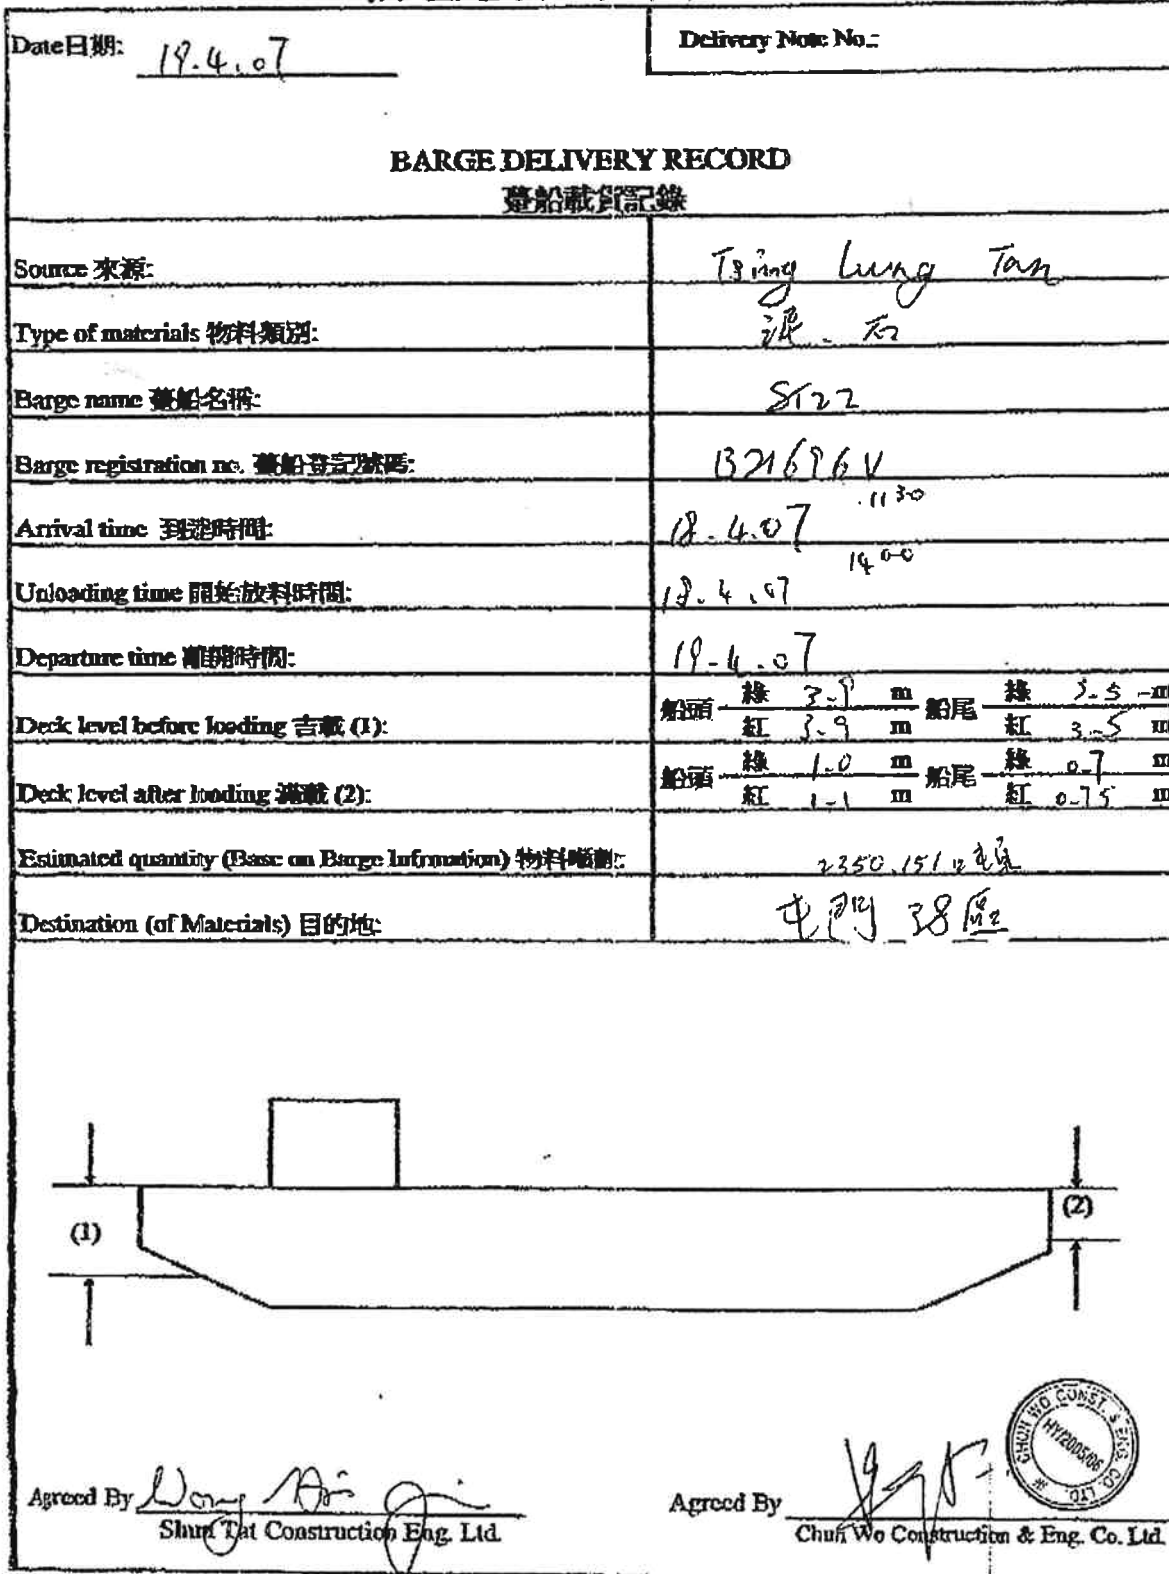 Date日期: 19.4.07
Delivery Note No.:
BARGE DELIVERY RECORD
躉船載貨記錄
Source 來源: Tsing Lung Tan
Type of materials 物料類別: 泥 - 石
Barge name 躉船名稱: ST22
Barge registration no. 躉船登記號碼: B21696V
Arrival time 到達時間: 18.4.07 1130
Unloading time 開始放料時間: 18.4.07 1400
Departure time 離開時間: 19-4.07
Deck level before loading 吉載 (1): 船頭 綠 3-9 m 紅 3-9 m 船尾 綠 3-5 m 紅 3-5 m
Deck level after loading 滿載 (2): 船頭 綠 1-0 m 紅 1-1 m 船尾 綠 0-7 m 紅 0-75 m
Estimated quantity (Base on Barge Infrmation) 物料噸數: 2350.151
Destination (of Materials) 目的地: 屯門 38區
(1)
(2)
Agreed By Wong
Shun Tat Construction Eng. Ltd.
Agreed By
Chun Wo Construction & Eng. Co. Ltd.
CHUN WO CONST. & ENG. CO. LTD.
HY/2005/06